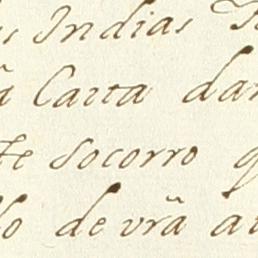 s Indias
Carta dar
te socorro q
do de vr̃a au